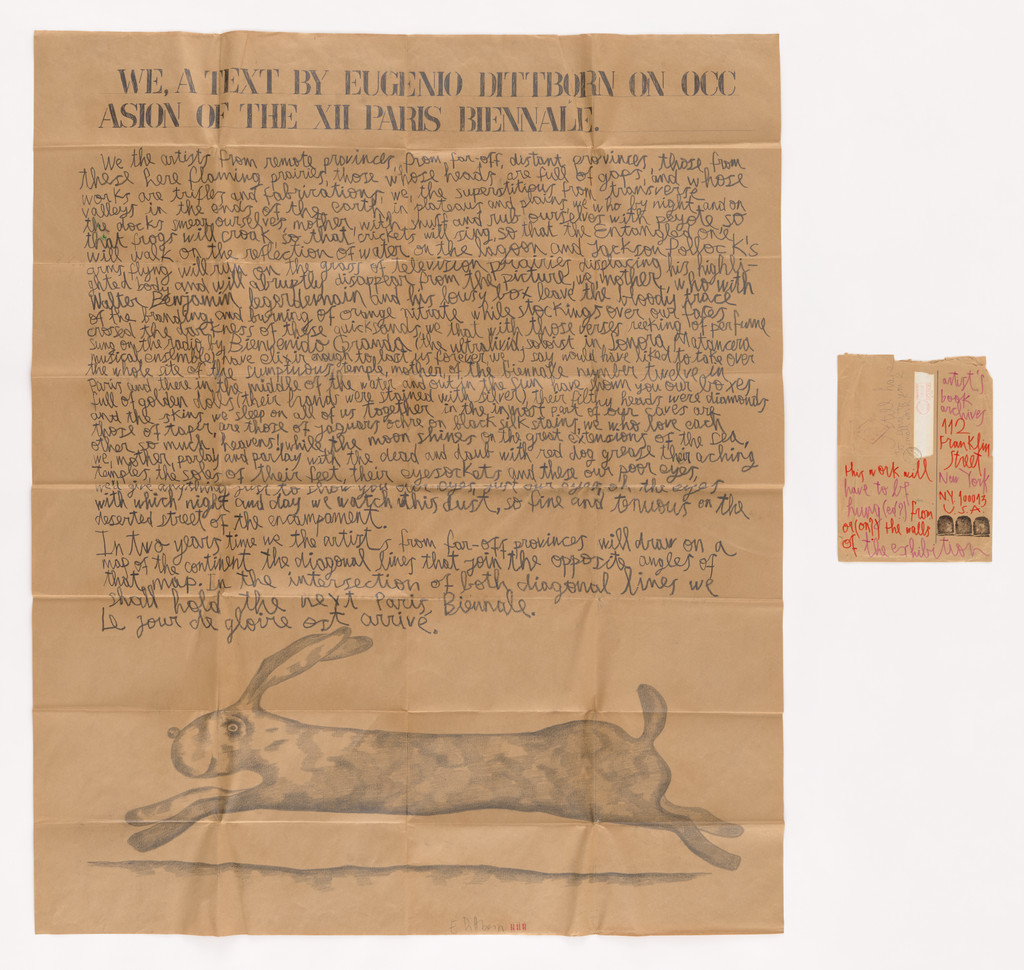 WE, A TEXT BY EUGENIO DITTBORN ON OCC
ASION OF THE XII PARIS BIENNALE.
We the artists from remote provinces, from far-off, distant provinces, those from
these here flaming prairies, those whose heads are full of gaps, and whose
works are trifles and fabrications, we, the superstitious from transverse
valleys in the ends of the earth, in plateaus and plains, we who by night and on
the docks smear ourselves, mother, with snuff and rub ourselves with peyote so
that frogs will croak, so that crickets will sing, so that the Entangled One
will walk on the reflection of water on the lagoon and Jackson Pollock's
arms flying will run on the grass of television prairies displacing his highli-
ghted body and will abruptly disappear from the picture, we mother, who with
Walter Benjamin legerdemain and his lousy box leave the bloody trace
of the branding and burning of orange nitrate while stockings over our faces
crossed the darkness of those quicksands, we that with those verses reeking of perfume
sung on the radio by Bienvenido Granda (the ultralivid soloist in Sonora Matancera
musical ensemble) have elixir enough to last us forever we, I say, would have liked to take over
the whole site of the sumptuous temple, mother, of the Biennale number twelve, in
Paris and there in the middle of the water and out in the sun have shown you our boxes
full of golden dolls (their hands were stained with silver) their filthy heads were diamonds
and the skins we sleep on all of us together in the inmost part of our caves are
those of tapir, are those of jaguars ochre on black silk stains, we who love each
other so much, heavens! while the moon shines on the great extensions of the sea,
we, mother, parlay and parlay with the dead and daub with red dog grease their aching
temples, the soles of their feet, their eyesockets and these our poor eyes,
we'd give anything just to show you our eyes, just our eyes, oh, the eyes
with which night and day we watch this dust, so fine and tenuous on the
deserted street of the encampment.
In two years time we the artists from far-off provinces will draw on a
map of the continent the diagonal lines that join the opposite angles of
that map. In the intersection of both diagonal lines we
shall hold the next Paris Biennale.
Le jour de gloire est arrivé.
E Dittborn
artist's
book
archives
112
Franklin
Street
New York
NY. 10013
U.S.A.
this work will
have to be
hung(ed?) from
or(on?) the walls
of the exhibition